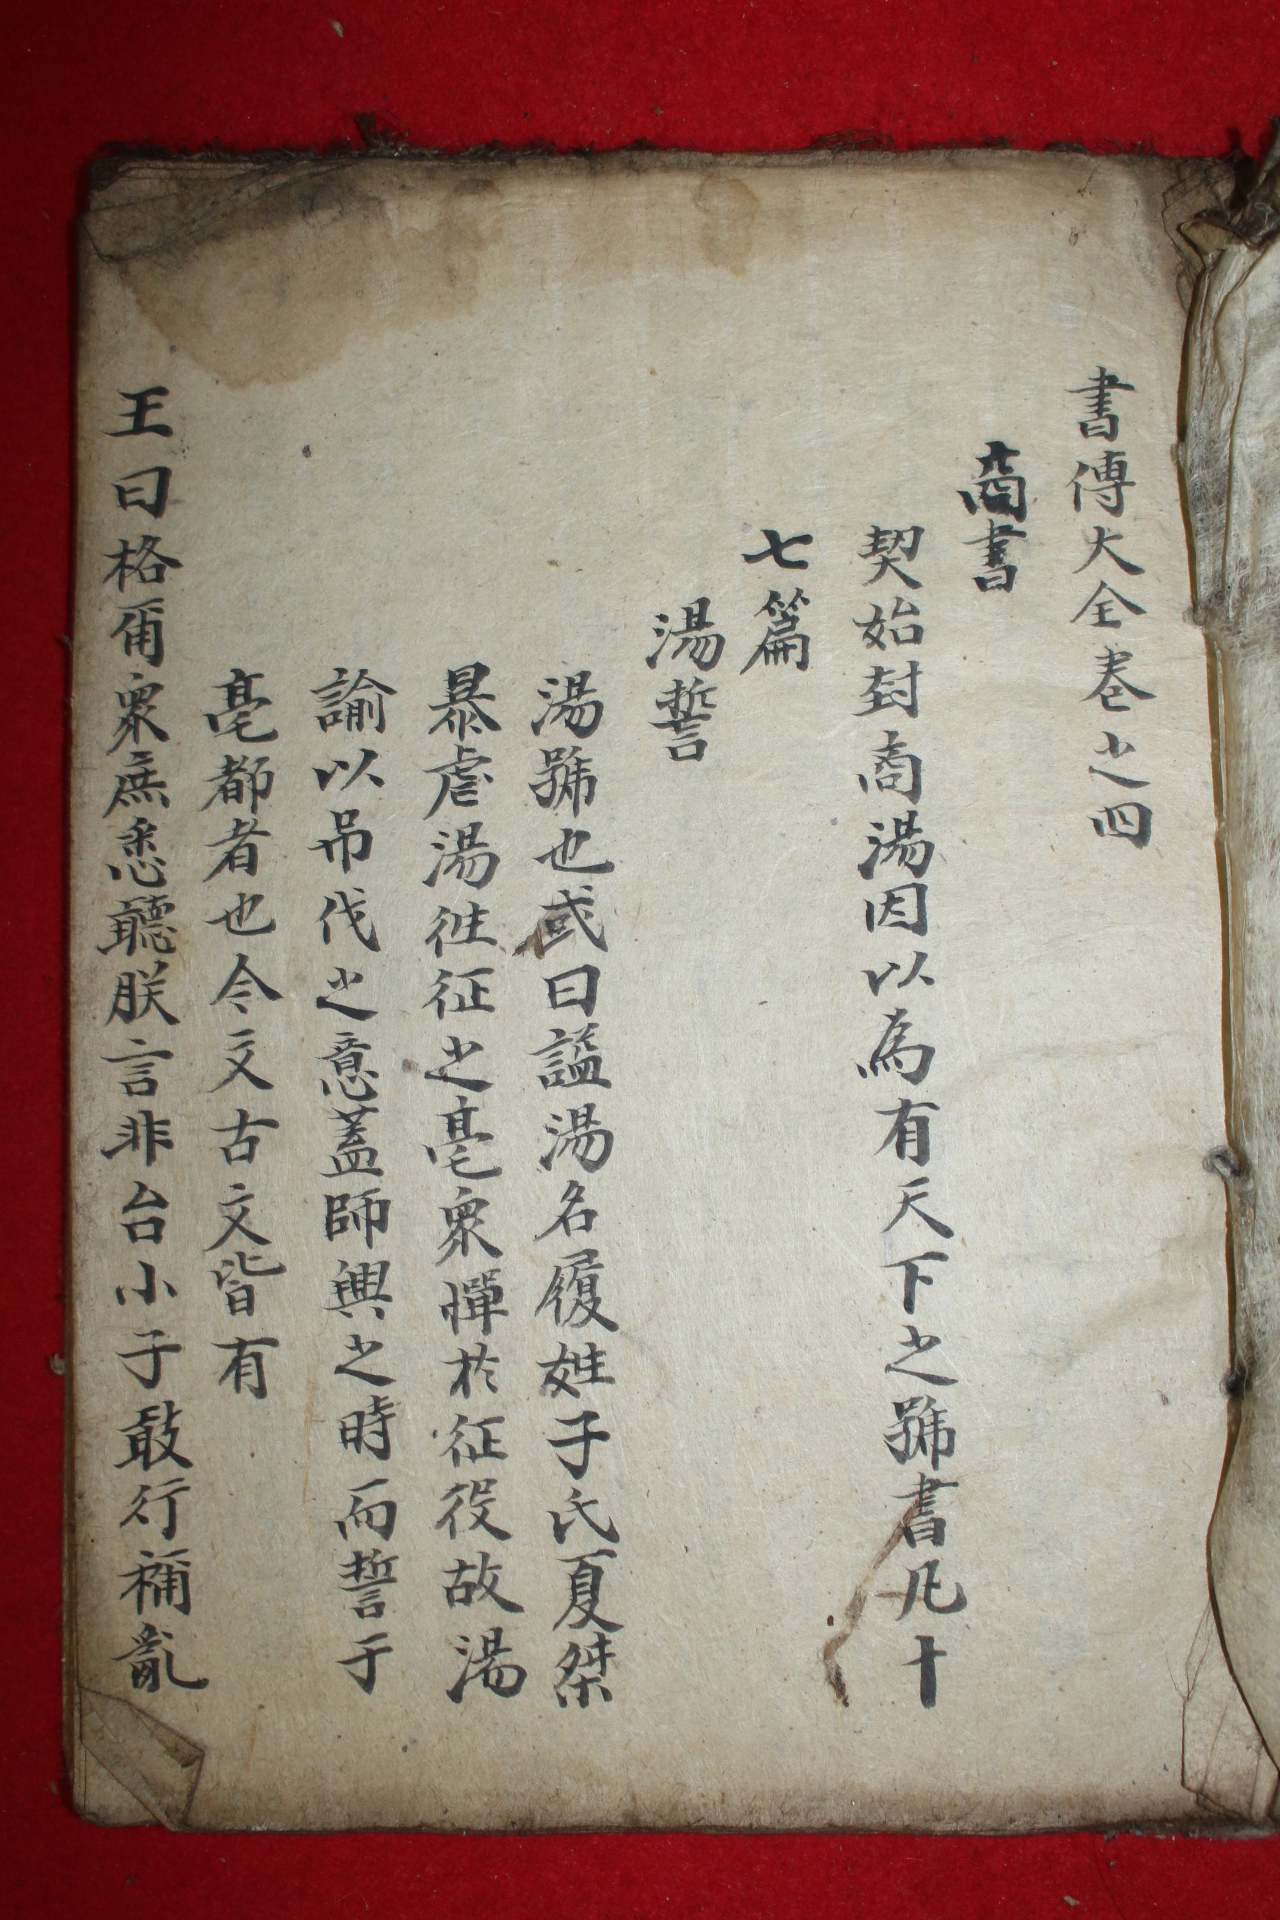 書傳大全卷之四
商書
契始封商湯因以為有天下之號書凡十
七篇
湯誓
湯號也或曰謚湯名履姓子氏夏桀
暴虐湯徃征之亳衆憚於征役故湯
諭以吊伐之意盖師興之時而誓于
亳都者也今文古文皆有
王曰格爾衆庶悉聽朕言非台小子敢行稱亂